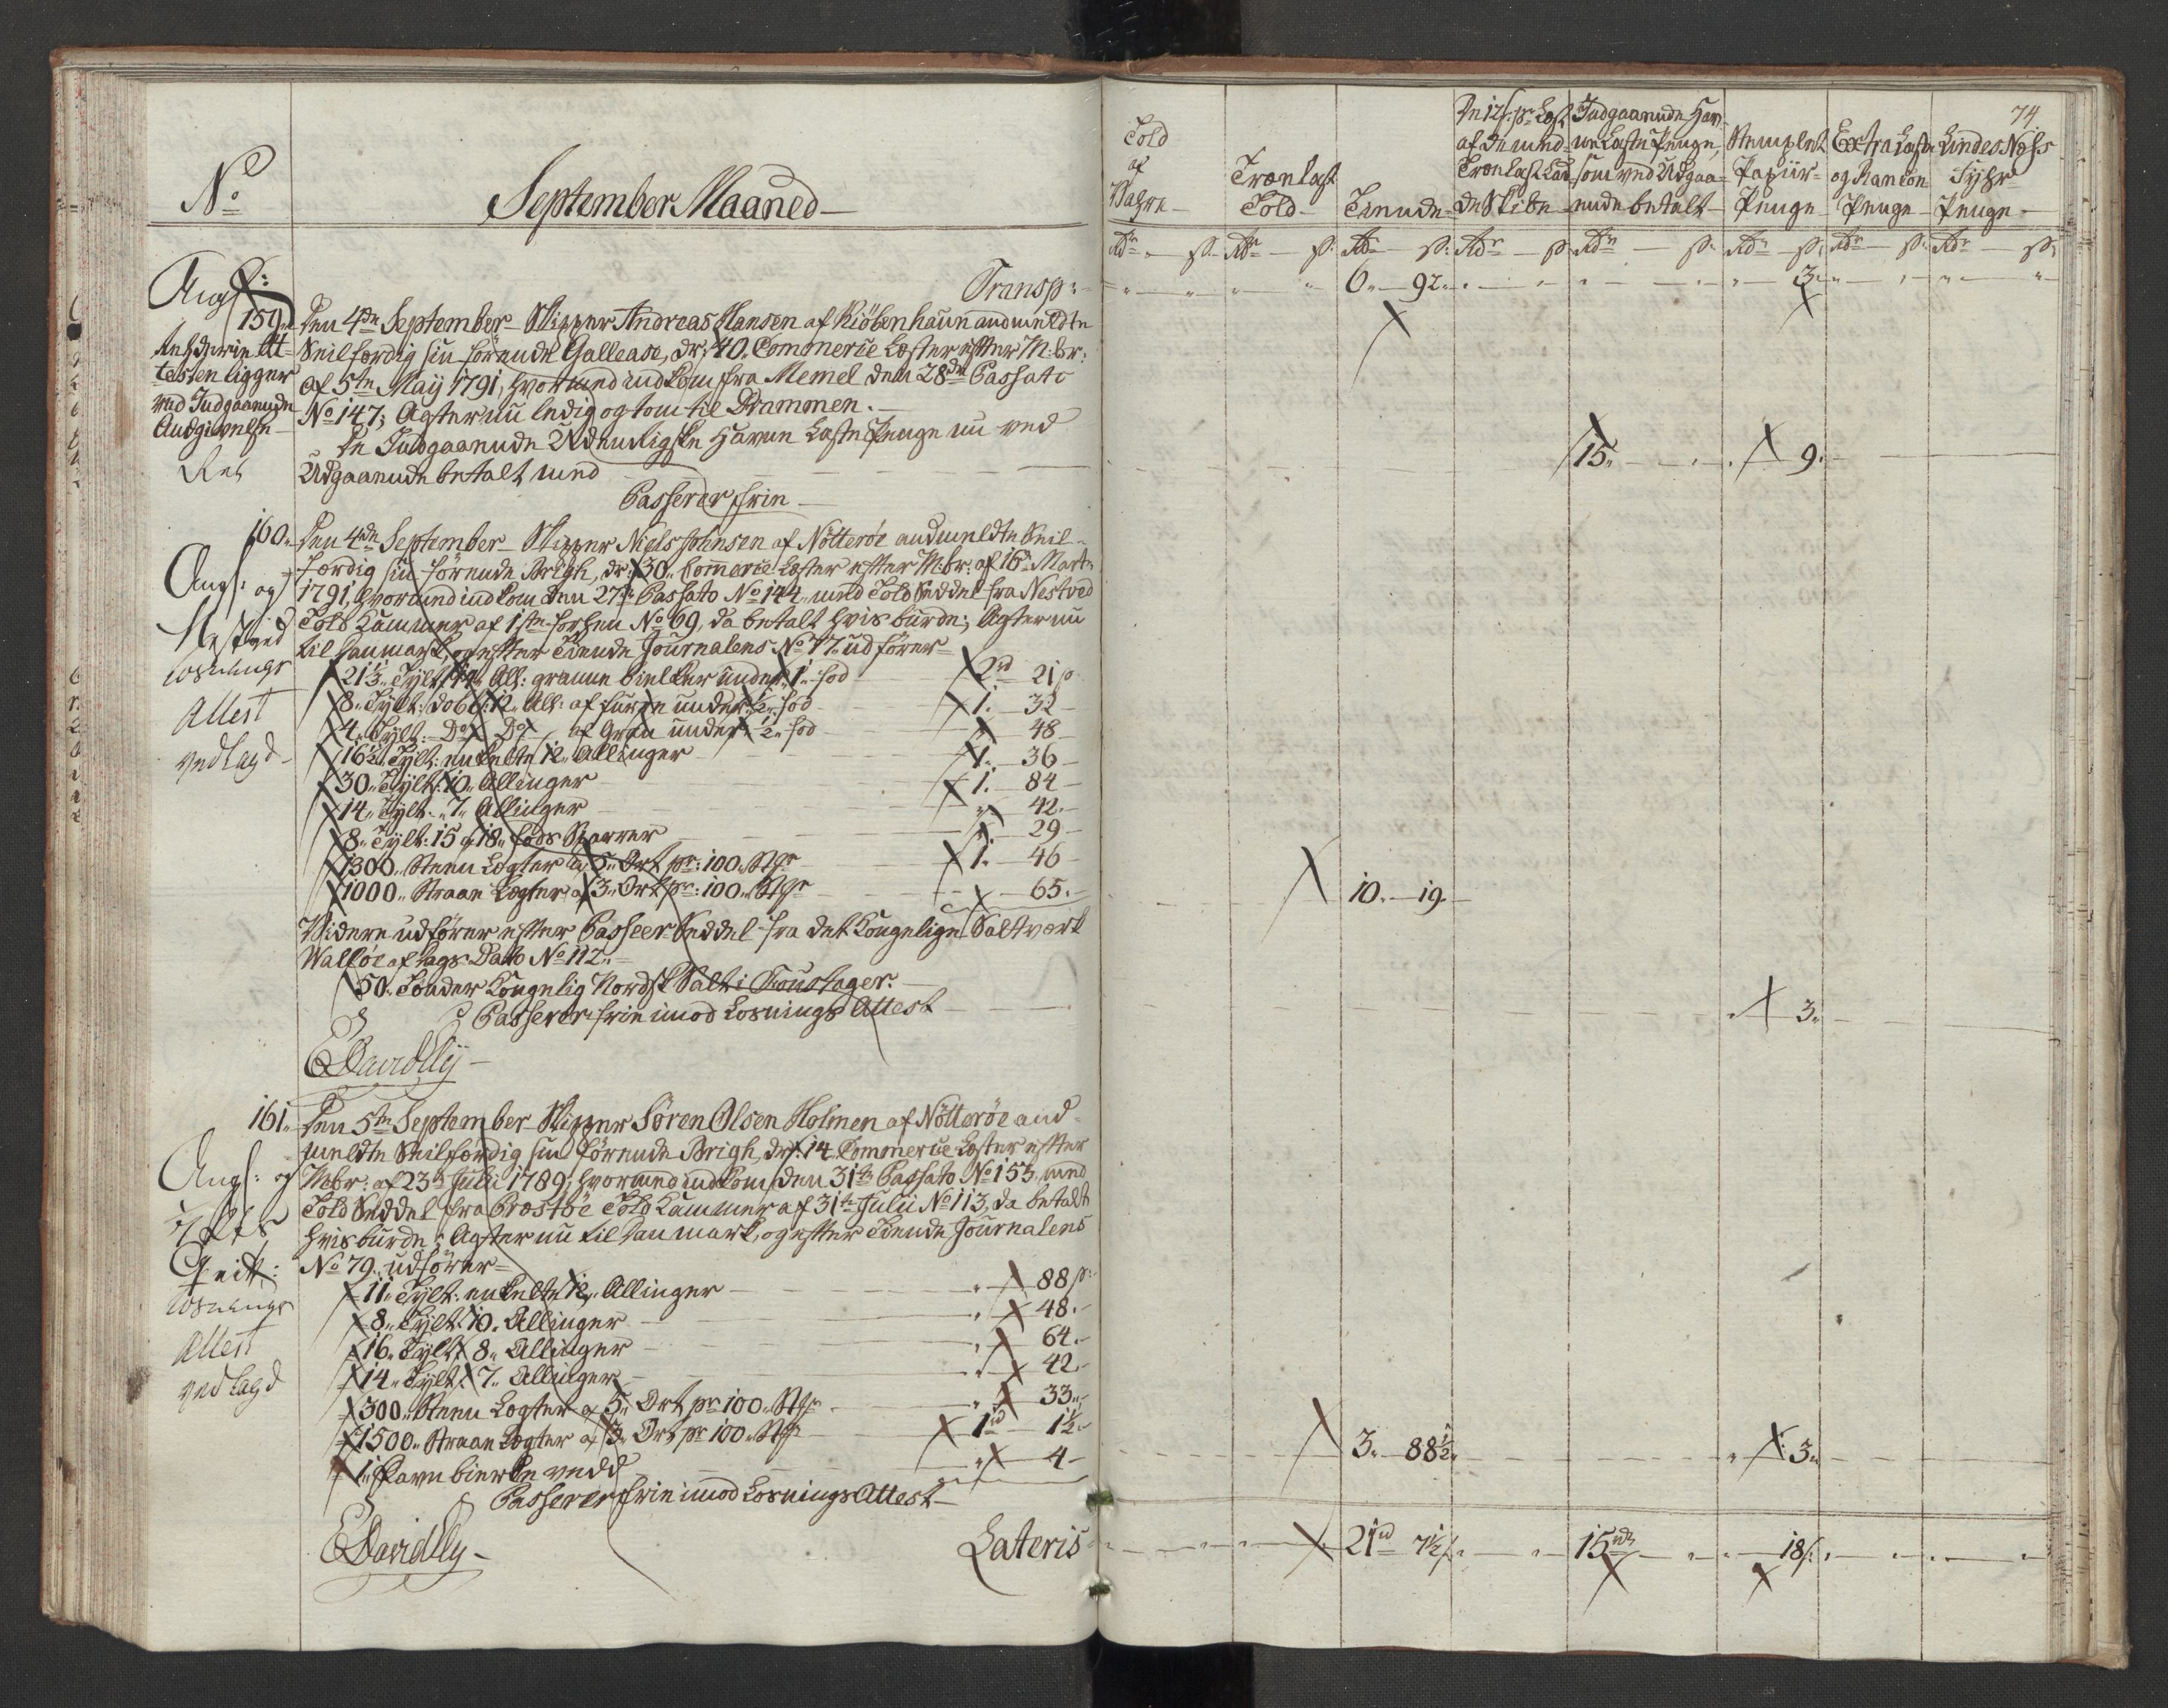 No
September Maaned
Transp:
159. Den 4de September Skipper Andreas Hansen af Kiöbenhaun andmeldte
Seilfærdig sin förende Gallease, dr: 40 Commerce Læster efter M:br:
af 5te May 1791, hvormed indkom fra Memel den 28de Passato
No 147; Agter nu ledig og tom til Drammen.
De Indgaaende Udenrigske Havne Laste Penge nu ved
Udgaaende betalt med
Passerer frie
Attesten ligger
ved Indgaaende
Angivelse
160. Den 4de September Skipper Niels Johnsen af Nötteröe andmeldte Seil-
færdig sin förende Brigh, dr: 30 Commerce Læster efter M:br: af 16 Marti
1791, hvormed indkom den 27de Passato No 144, med Told Seddel fra Nestved
Told Kammer af 1ste forhen No 69, da betalt hvis burde; Agter nu
til Danmark, og efter Tiende Journalens No 77 udförer
21½ Tylt 14 All: granne Bielker under 1 fod 2rd 21s
8 Tylt: dob: 12 All: af furue under ½ fod 1. 32
4 Tylt: Do Do af Gran under ½ fod 48
16½ Tylt: enkelte 12 Allinger 1. 36
30 Tylt: 10 Allinger 1. 84
14 Tylt: 7 Allinger 42
8 Tylt: 15 a 18 fods Sparrer 29
1300 Steen Lægter a 5 Ort pr: 100 Stkr 1. 46
1000 Straae Lægter a 3 Ort pr: 100 Stkr 65
Videre udförer efter Passeer Seddel fra det Kongelige Saltværk
Wallöe af Dags Dato No 112
50 Tönder Kongelig Nordsk Salt i Foustager.
Passerer frie imod Losnings Attest
Nestved
Losnings
Attest
vedlagd
161. Den 5te September Skipper Sören Olsen Holmen af Nötteröe and-
meldte Seilfærdig sin förende Brigh, dr: 14 Commerce Læster efter
Mbr: af 23de Julii 1789, hvormed indkom den 31te Passato No 153, med
Told Seddel fra Præstöe Told Kammer af 31te Julii No 113, da betalt
hvis burde; Agter nu til Danmark, og efter Tiende Journalens
No 79 udförer
11 Tylt: enkelte 12 Allinger 88s
8 Tylt 10 Allinger 48
16 Tylt 8 Allinger 64
14 Tylt 7 Allinger 42
300 Steen Lægter a 5 Ort pr 100 Stkr 33
1500 Straae Lægter a 3 Ort pr 100 Stkr 1rd 1½
1 Favn bierke vedd 4
Passerer frie imod Losnings Attest
Losnings
Attest
vedlagd
Lateris
74
Told
af
Vahre
Trælast
Told
Tiende
De 12s. pr Læst
af de med
Trælast Lad-
de Skibe
Indgaaende Hav-
ne Laste Penge,
som ved Udgaa-
ende betalt
Stemplet
Papiir
Penge
Extra Laste
og Rantzon
Penge
Lindes Næss
Fyhr
Penge
Rdr s. Rdr s. Rdr s. Rdr s. Rdr s. Rdr s. Rdr s. Rdr s.
6 92 3
15 9
10 19
3
3 88½ 3
21rd 7½s 15rd 18s